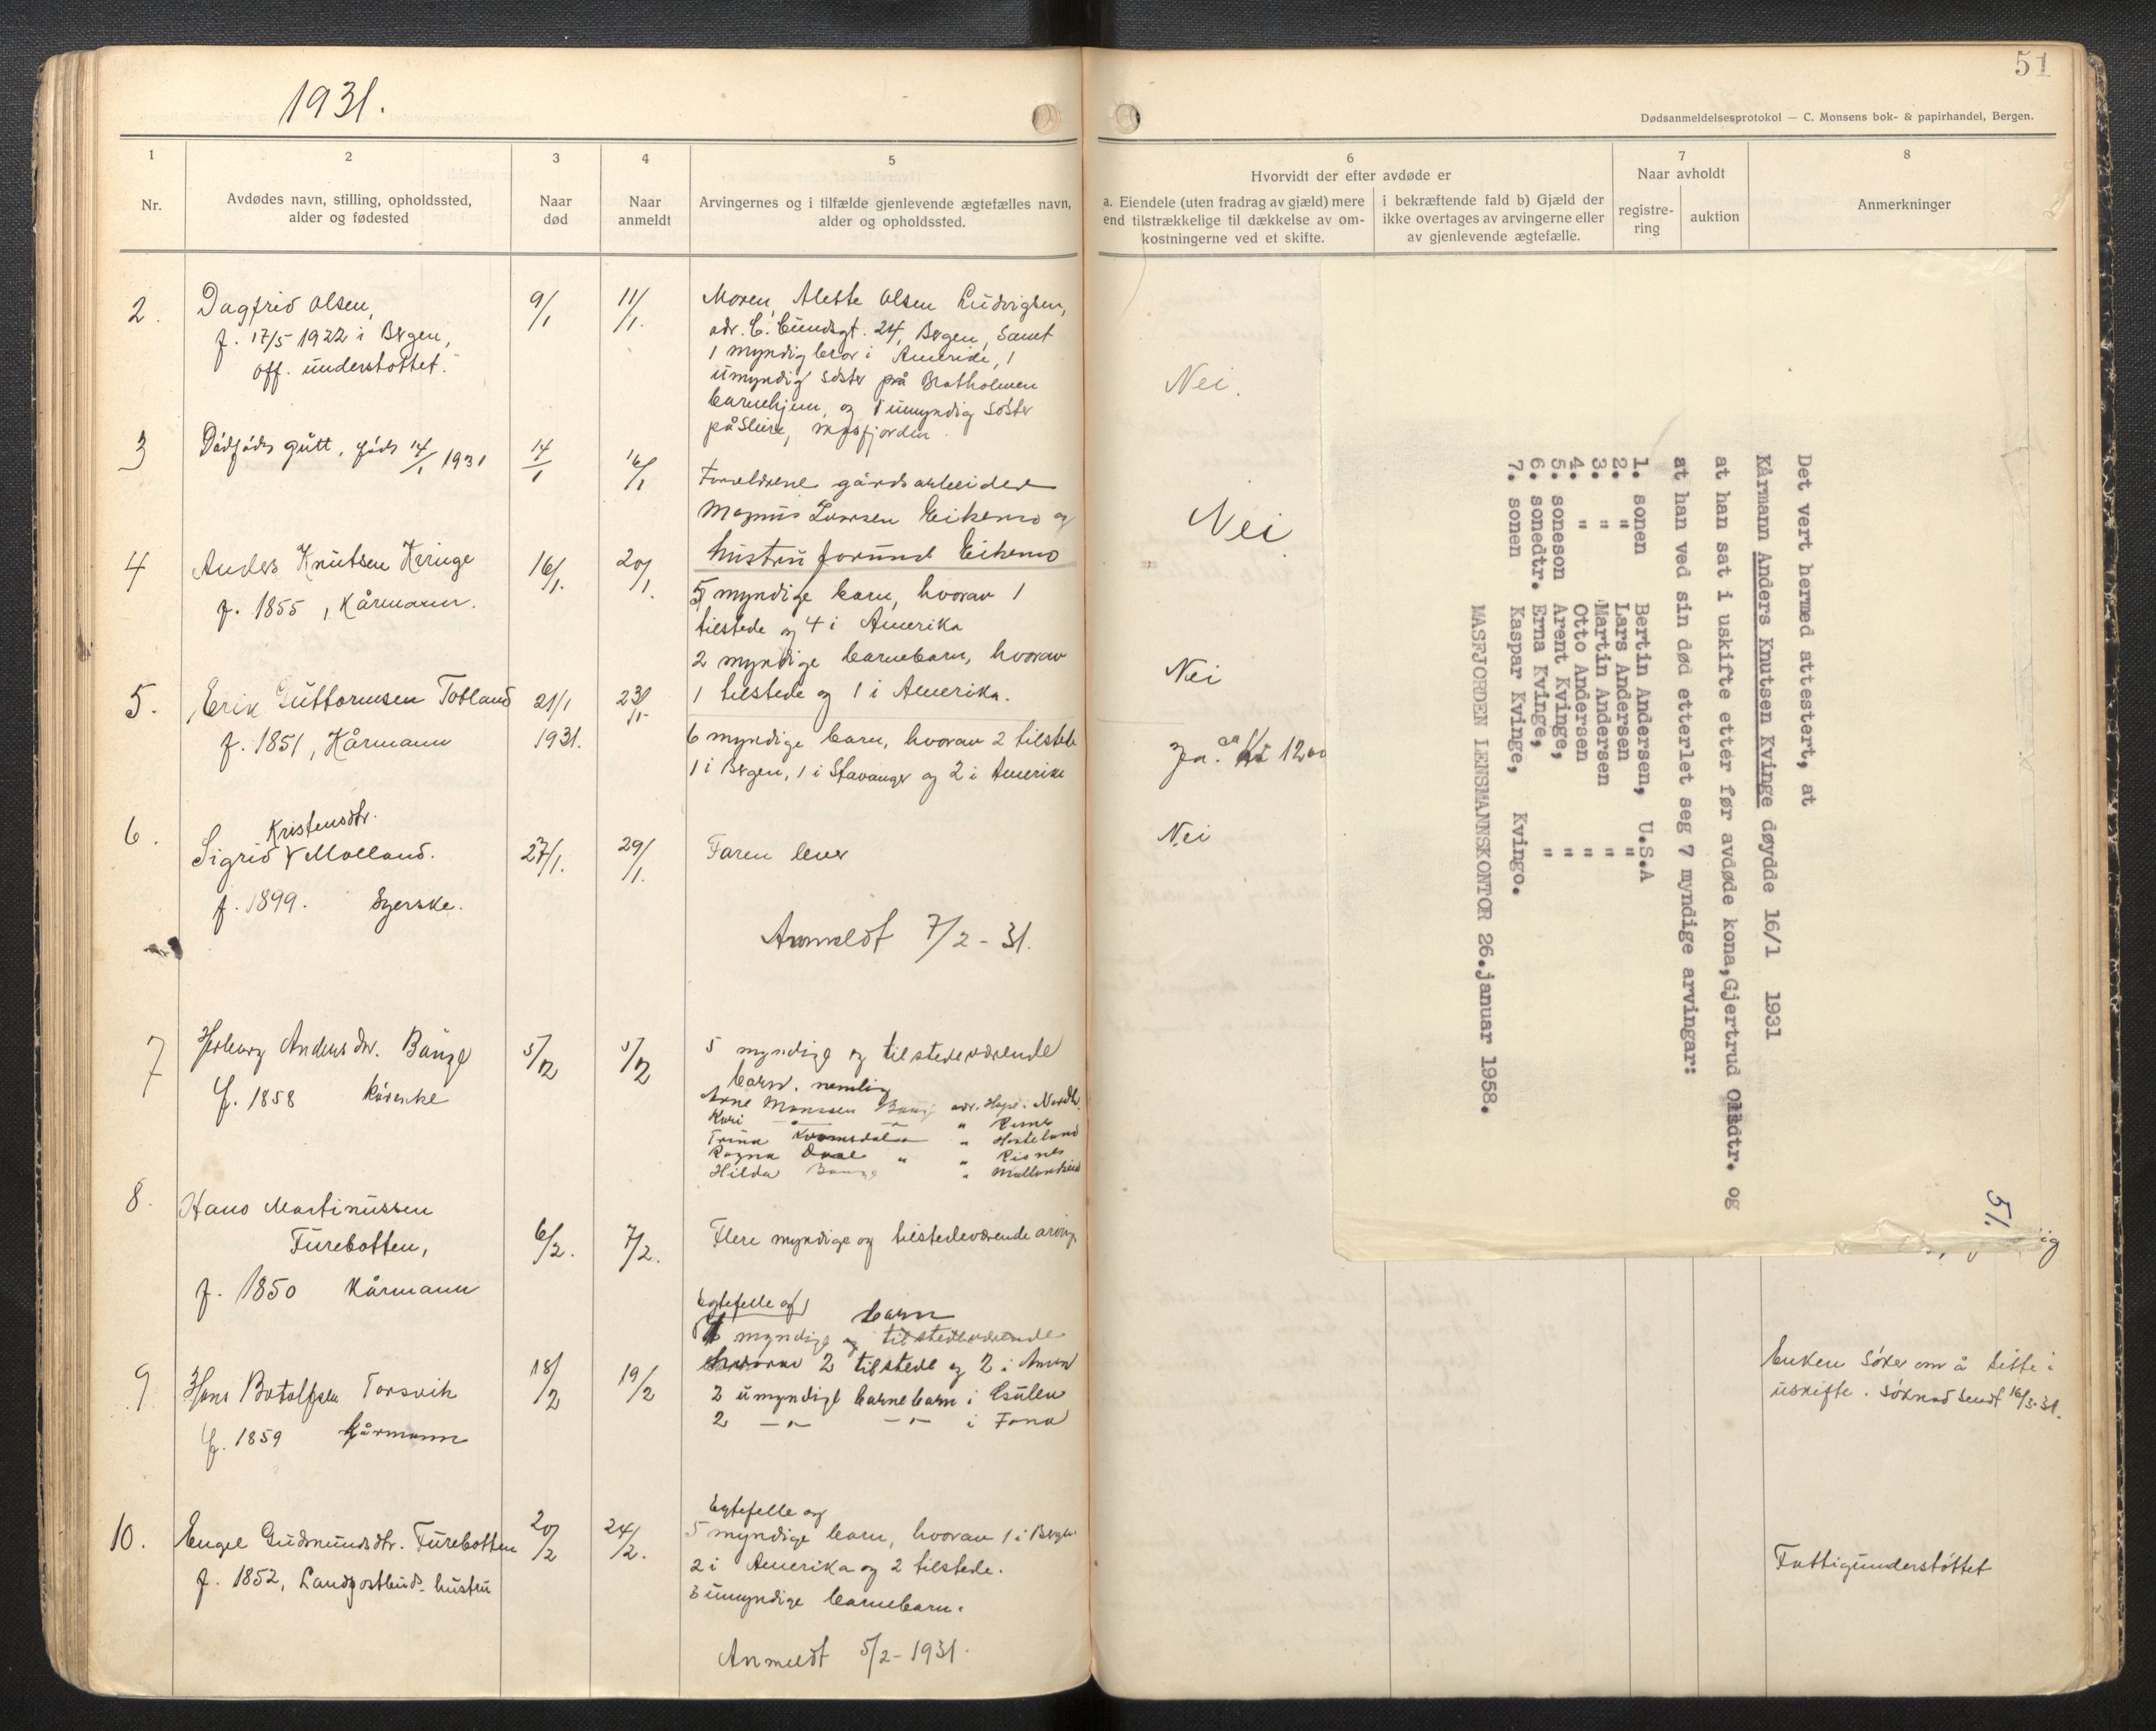 1931.
51
Dødsanmeldelsesprotokol — C. Monsens bok- & papirhandel, Bergen.
1
Nr.
2
Avdødes navn, stilling, opholdssted,
alder og fødested
3
Naar
død
4
Naar
anmeldt
5
Arvingernes og i tilfælde gjenlevende ægtefælles navn,
alder og opholdssted.
6
Hvorvidt der efter avdøde er
a. Eiendele (uten fradrag av gjæld) mere
end tilstrækkelige til dækkelse av om-
kostningerne ved et skifte.
i bekræftende fald b) Gjæld der
ikke overtages av arvingerne eller
av gjenlevende ægtefælle.
7
Naar avholdt
registre-
ring
auktion
8
Anmerkninger
2.
Dagfrid Olsen,
f. 17/5 1922 i Bergen,
off. understøttet.
9/1
11/1.
Moren, Alette Olsen Ludvigsen,
adr. C. Sundsgt. 24, Bergen, samt
1 myndig bror i Amerika, 1
umyndig søster på Bratholmen
barnehjem, og 1 umyndig søster
på Sleire, Masfjorden.
Nei.
3
Dødfødt gutt, født 14/1 1931
14/1
16/1
Foreldrene gårdsarbeider
Magnus Larsen Eikemo og
hustru Jorund Eikemo
Nei
4
Anders Knutsen Kvinge
f. 1855, Kårmann.
16/1.
20/1.
5 myndige barn, hvorav 1
tilstede og 4 i Amerika
2 myndige barnebarn, hvorav
1 tilstede og 1 i Amerika.
Nei
5.
Erik Guttormsen Totland
f. 1851, Kårmann
21/1
1931.
23/1
6 myndige barn, hvorav 2 tilstede
1 i Bergen, 1 i Stavanger og 2 i Amerika
Ja. ca Kr 1200
6.
Kristensdtr.
Sigrid Molland.
f. 1899. Syerske.
27/1.
29/1.
Faren lever
Nei
Anmeldt 7/2 - 31.
7
Herborg Andersdtr. Bauge
f. 1858 kårenke
5/2
5/2
5 myndige og tilstedeværende
barn. nemlig
Arne Monssen Bauge adr. Hope i Nordh.
Kari — " — " Risnes
Trina Kvamsdal " Hosteland
Ragna Daae " " Risnes
Hilda Bauge " Mollandseid
8.
Hans Martinussen
Furebotten,
f. 1850 Kårmann
6/2.
7/2.
Flere myndige og tilstedeværende arving.
9
Hans Botolfsen Torsvik
f. 1859 Kårmann
18/2
19/2
Egtefelle og
barn
myndige og tilstedeværende
hvorav 2 tilstede og 2 i Amer
2 umyndige barnebarn i Gulen
2 — " — — " — i Fana
Enken søker om å sitte i
uskifte. Søknad sendt 16/3.31.
10.
Engel Gudmundsdtr. Furebotten
f. 1852, Landpostbuds hustru
20/2
24/2.
Egtefelle og
5 myndige barn, hvorav 1 i Bergen
2 i Amerika og 2 tilstede.
3 umyndige barnebarn.
Fattigunderstøttet
Anmeldt 5/2 - 1931.
Det vert hermed attestert, at
Kårmann Anders Knutsen Kvinge døydde 16/1 1931
at han sat i uskifte etter før avdøde kona, Gjertrud Olsdtr. og
at han ved sin død etterlet seg 7 myndige arvingar:
1. sonen Bertin Andersen, U.S.A
2. " Lars Andersen "
3. " Martin Andersen "
4. " Otto Andersen "
5. soneson Arent Kvinge, "
6. sonedtr. Erna Kvinge, "
7. sonen Kaspar Kvinge, Kvingo.
MASFJORDEN LENSMANNSKONTOR 26.januar 1958.
51.
ig